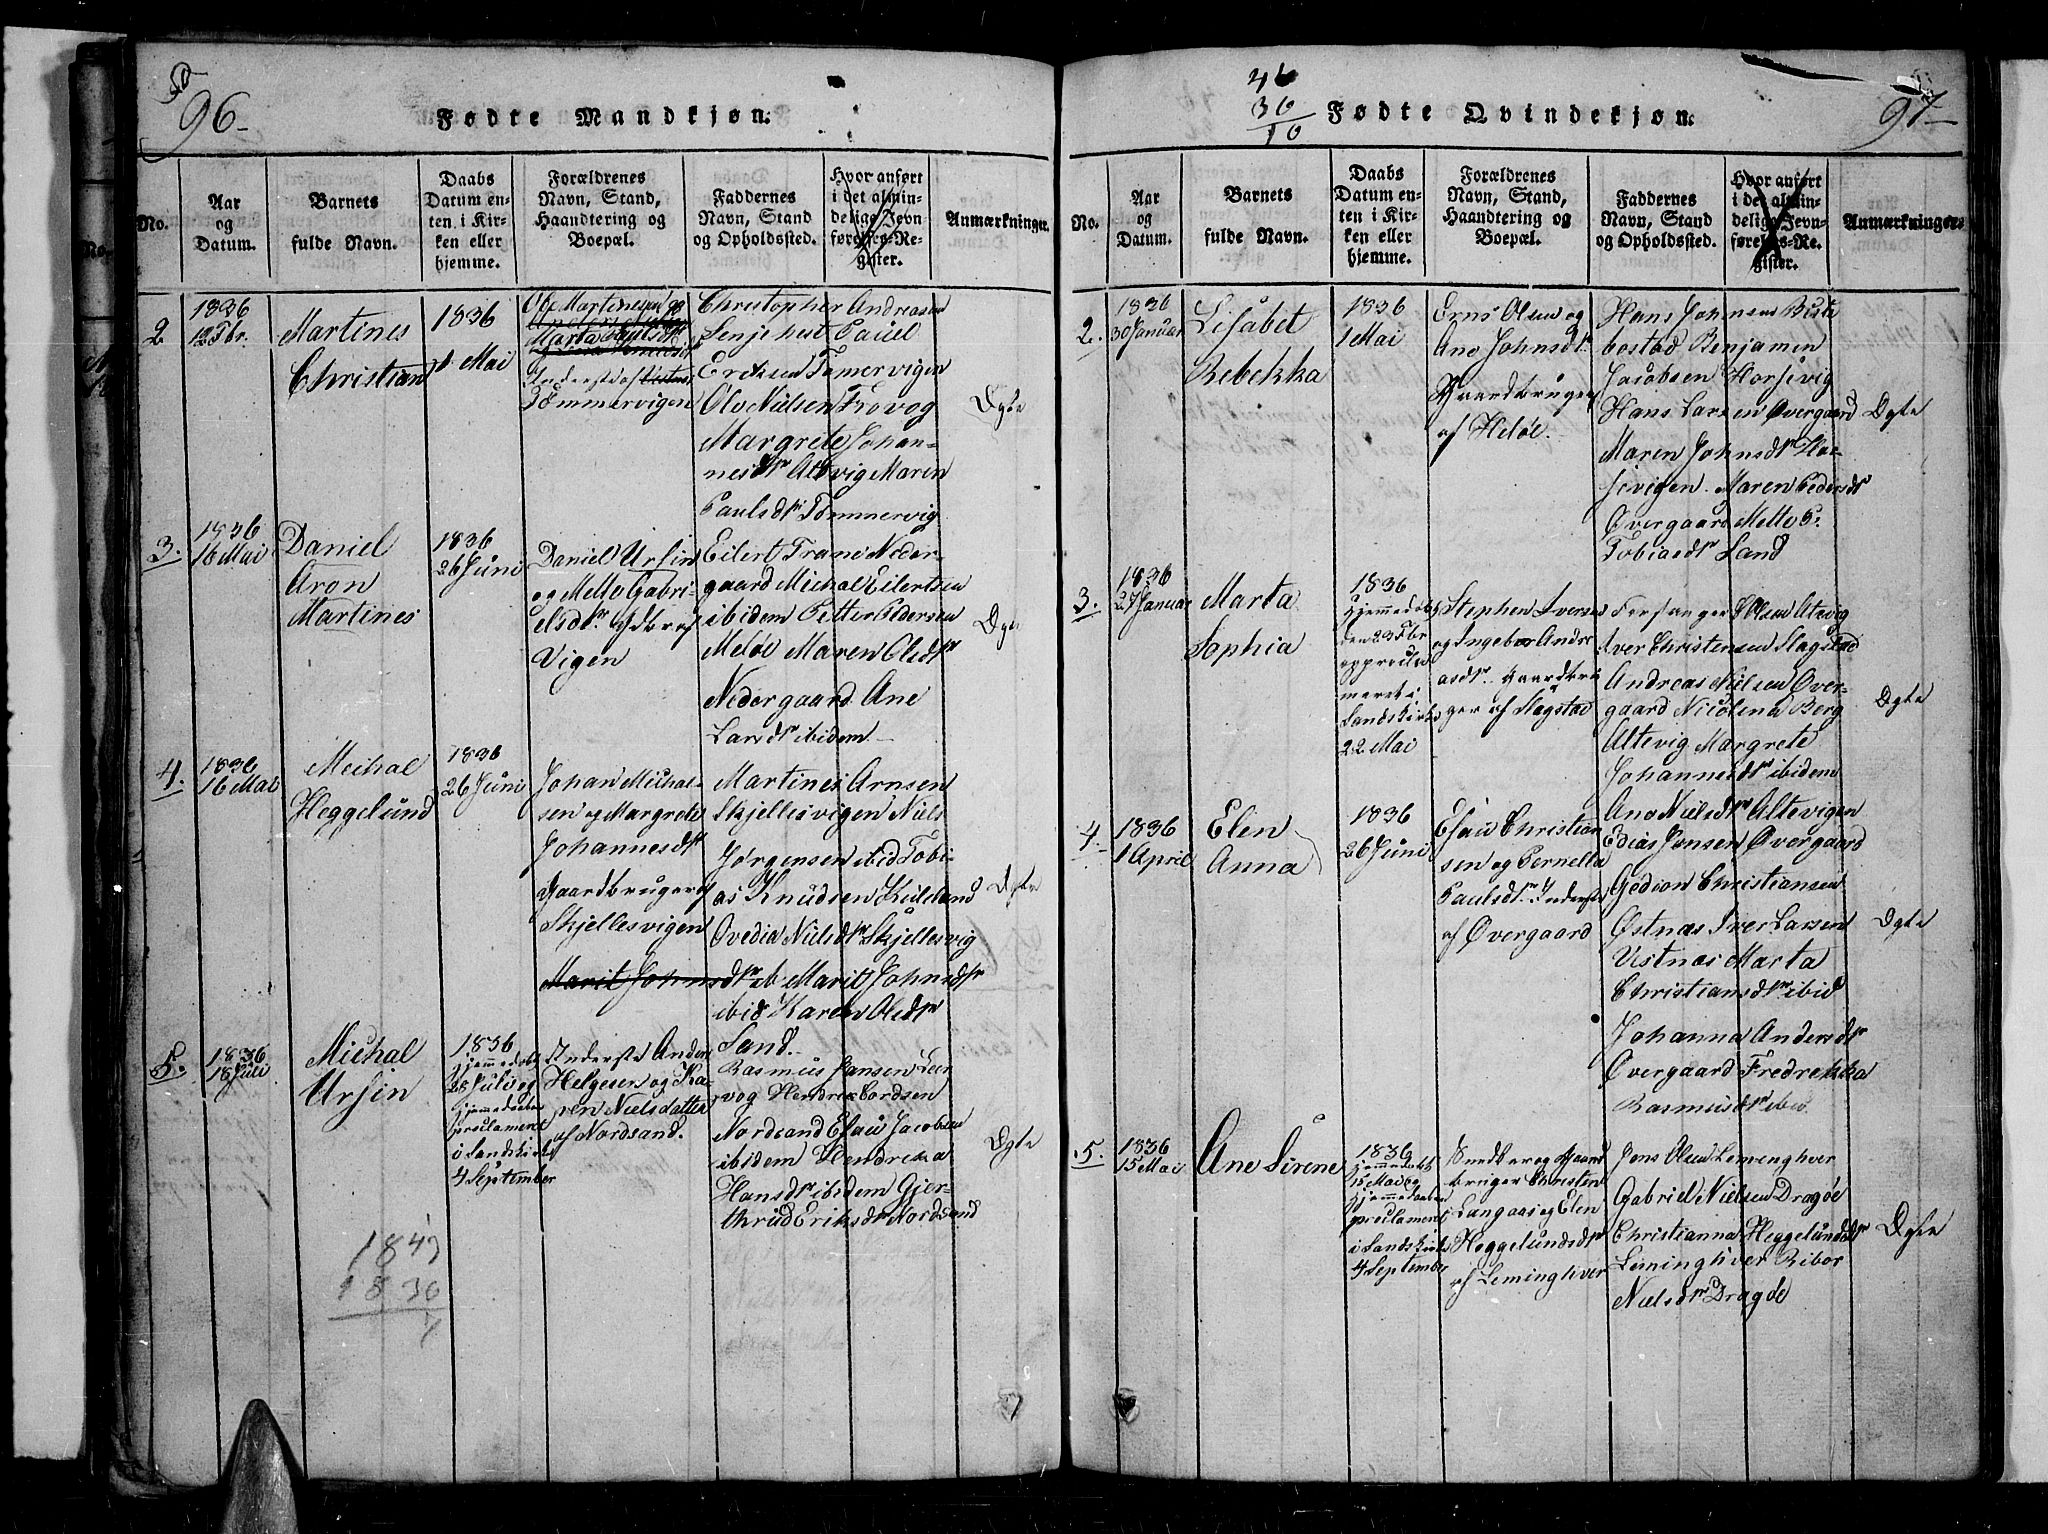 96
Fødte Mandkjøn.
No.
Aar
og
Datum.
Barnets
fulde Navn.
Daabs
Datum en-
ten i Kir-
ken eller
hjemme.
Forældrenes
Navn, Stand,
Haandtering og
Boepæl.
Faddernes
Navn, Stand
og Opholdssted.
Hvor anført
i det almin-
delige Jevn-
førelses-Re-
gister.
Anmærkninger.
2
1836
12 Fbr.
Martines
Christian
1836
1 Mai
Ole Martinesen og
Marta Paulsdtr
Inderste af
Tømmervigen
Christopher Andreasen
Senjehest Pauel
Eriksen Tømervigen
Ole Nielsen Frovog
Margrete Johan-
nesdtr Altevig Maren
Paulsdtr Tømmervig
Dgte
3.
1836
16 Mai
Daniel
Aron
Martines
1836
26 Juni
Daniel Ursin
og Mette Gabri-
elsdtr. Gdbr af
Vigen
Eilert Trane Neder-
gaard Michal Eilertsen
ibidem Petter Pedersen
Meløe Maren Olsdtr
Nedergaard Ane
Larsdtr ibidem
Dgte
4.
1836
16 Mai
Michal
Heggelund
1836
26 Juni
Johan Michal-
sen og Margrete
Johannesdtr
Gaardbruger af
Skjellesvigen
Marit Johnsdtr ib
Martines Arnsen
Skjellesvigen Niels
Jørgensen ibid Tobi-
as Knudsen Kileland
Ovedia Nielsdtr Skjellesvig
Marit Johnsdtr
ibid Karen Olsdtr
Sand.
Dgte
5.
1836
18 Juli
Michal
Ursin
1836
hjemmedøbt
28 Juli og
hjemmedaaben
proclameret
i Sandskirke
4 September
Inderste Anders
Helgesen og Ka-
ren Nielsdatter
af Nordsand.
Rasmus Jansen Leir
vog Hendrik Cordsen
Nordsand Esau Jacobsen
ibidem Hendrika
Hansdtr ibidem Gjer-
thrud Eriksdtr Nordsand
Dgte
1847
1836
46
36
10
Fødte Qvindekjøn.
97
No.
Aar
og
Datum.
Barnets
fulde Navn.
Daabs
Datum en-
ten i Kir-
ken eller
hjemme.
Forældrenes
Navn, Stand,
Haandtering og
Boepæl.
Faddernes
Navn, Stand
og Opholdssted.
Hvor anført
i det almin-
delige Jevn-
førelses-Re-
gister.
Anmærkninger.
2.
1836
30 Januar
Lisabet
Rebekka
1836
1 Mai
Erns Olsen og
Ane Johnsdtr.
Gaardbruger
af Meløe.
Hans Johnsen Biste
bostad Benjamin
Jacobsen Horsevig
Hans Larsen Øvergaard
Maren Johnsdtr Hor-
sevigen. Maren Pedersdtr
Øvergaard Mette
Tobiasdtr Sand
Dgte
3.
1836
27 Januar
Marta
Sophia
1836
Hjemmedøbt
den 23 Fbr
og procla
meret i
Sandskirke
22 Mai
Stephen Iversen
og Ingebor Andre
asdtr. Gaardbru
ger af Slagstad
Olsen Altevig
Iver Christensen Slagstad
Andreas Nielsen Øver-
gaard Nicolina Berg
Altevig Margrete
Johannesdtr ibidem
Dgte
4.
1836
1 April
Elen
Anna
1836
26 Juni
Esau Christian
sen og Pernella
Paulsdtr. Inderste
af Øvergaard
Ane Nielsdtr Altevigen
Edias Jensen Øvergaard
Gedion Christiansen
Østnæs Iver Larsen
Vestnæs Marta
Christiansdtr ibid
Johanna Andersdtr
Øvergaard Fredrekka
Rasmusdtr ibid.
Dgte
5.
1836
15 Mai
Ane Sirene
1836
hjemmedøbt
15 Mai og
hjemmedaaben
proclameret
i Sandskirke
4 September
bruger Christen
Langaas og Elen
Heggelundsdtr
af Leminghver
Jens Olsen Leminghver
Gabriel Nielsen Dragøe
Christianna Heggelundsdtr
Leminghver Ribor
Nielsdtr Dragøe
Dgte